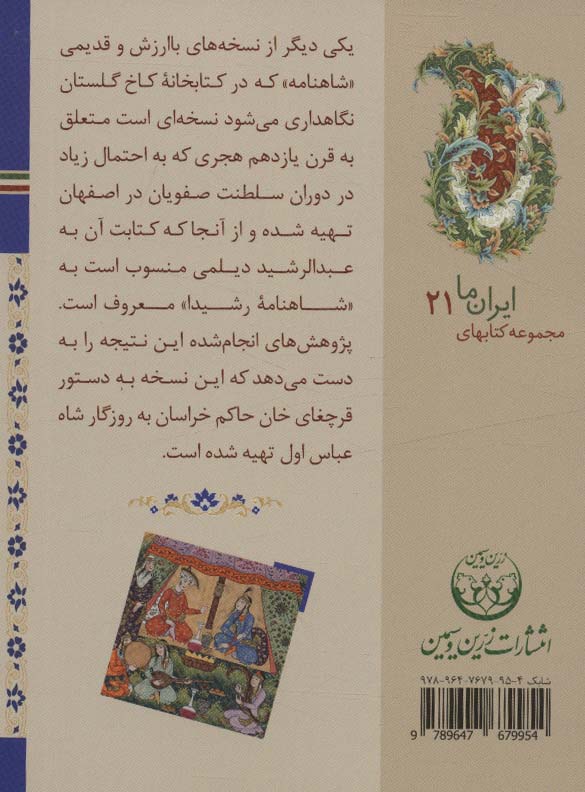 یکی دیگر از نسخه‌های باارزش و قدیمی
«شاهنامه» که در کتابخانۀ کاخ گلستان
نگاهداری می‌شود نسخه‌ای است متعلق
به قرن یازدهم هجری که به احتمال زیاد
در دوران سلطنت صفویان در اصفهان
تهیه شده و از آنجا که کتابت آن به
عبدالرشید دیلمی منسوب است به
«شاهنامۀ رشیدا» معروف است.
پژوهش‌های انجام‌شده این نتیجه را به
دست می‌دهد که این نسخه به دستور
قرچغای خان حاکم خراسان به روزگار شاه
عباس اول تهیه شده است.
ایران ما ۲۱
مجموعه کتابهای
زرین و سیمین
انتشارات زرین و سیمین
شابک ۴-۹۵-۷۶۷۹-۹۶۴-۹۷۸
9 789647 679954